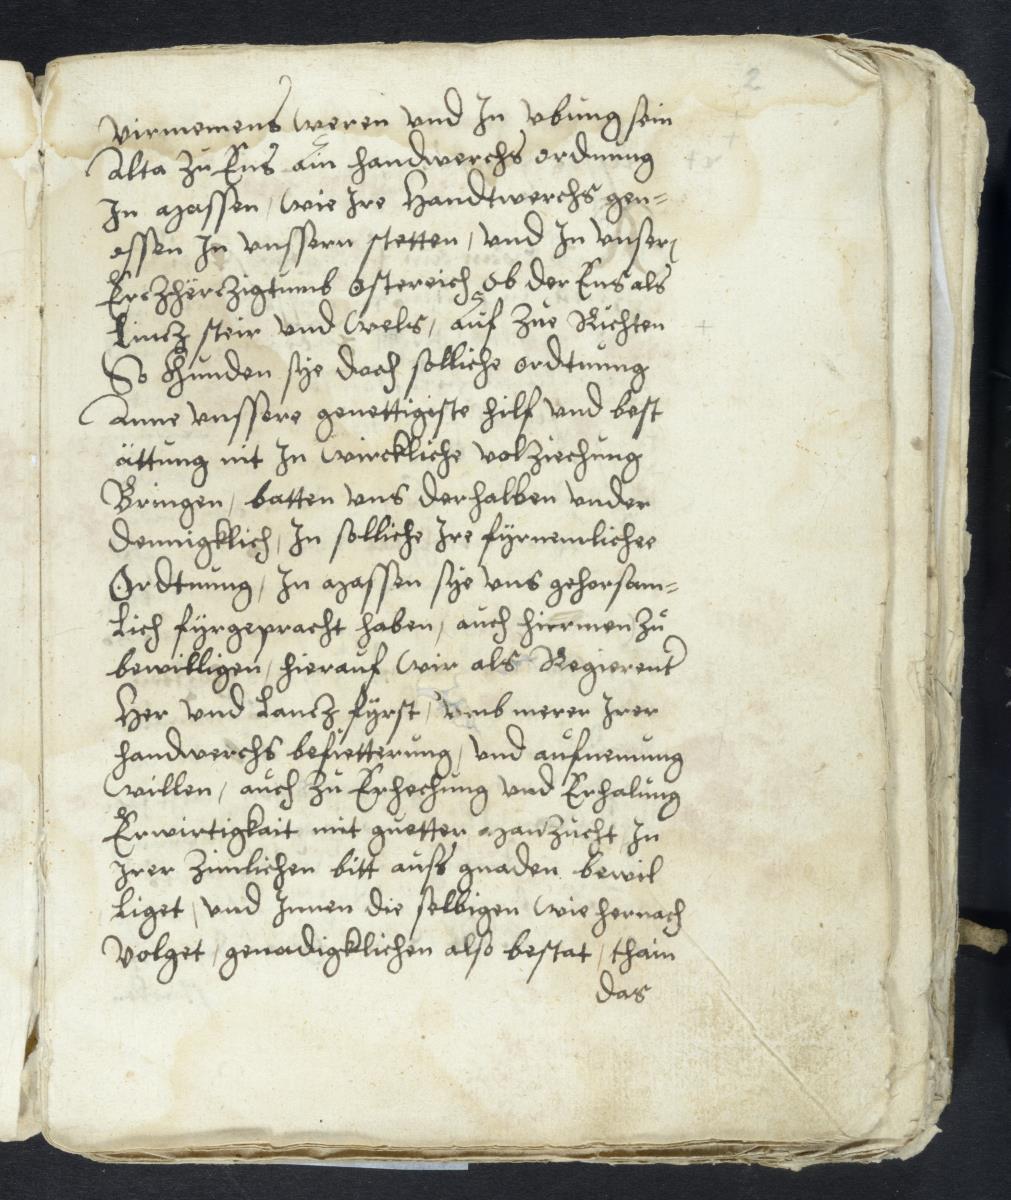 2
virmemens weren vnd In vbung sein
Alta zu Ens ain handwerchs ordnung
In massen, wie Ire Handtwerchs gen=
ossen In vnssern stetten, vnd In vnser
Erczhërczigtumb Ostereich ob der Ens als
Lincz steir vnd Wels, auf zue Richten
So khunden sye doch solliche ordtnung
Anne vnssere genettigiste hilf vnd best
ättung nit In wirckliche volziechung
Bringen, batten vns derhalben vnder
dennigklich, In solliche Ire fyrnemlichee
Ordtnung, In massen sye vns gehorsam=
Lich fyrgepracht haben, auch hierinen zu
bewilligen, hierauf wir als Regierent
Her vnd Lancz fyrst, vmb merer Irer
handwerchs befietterung, vnd aufnemung
willen, auch zu Erhechung vnd Erhalung
Erwirtigkait mit guetter manzucht In
Irer zimlichen bitt auss gnaden bewil
Liget, vnd Innen die selbigen wie hernach
Volget, genadigklichen also bestat, thain
das